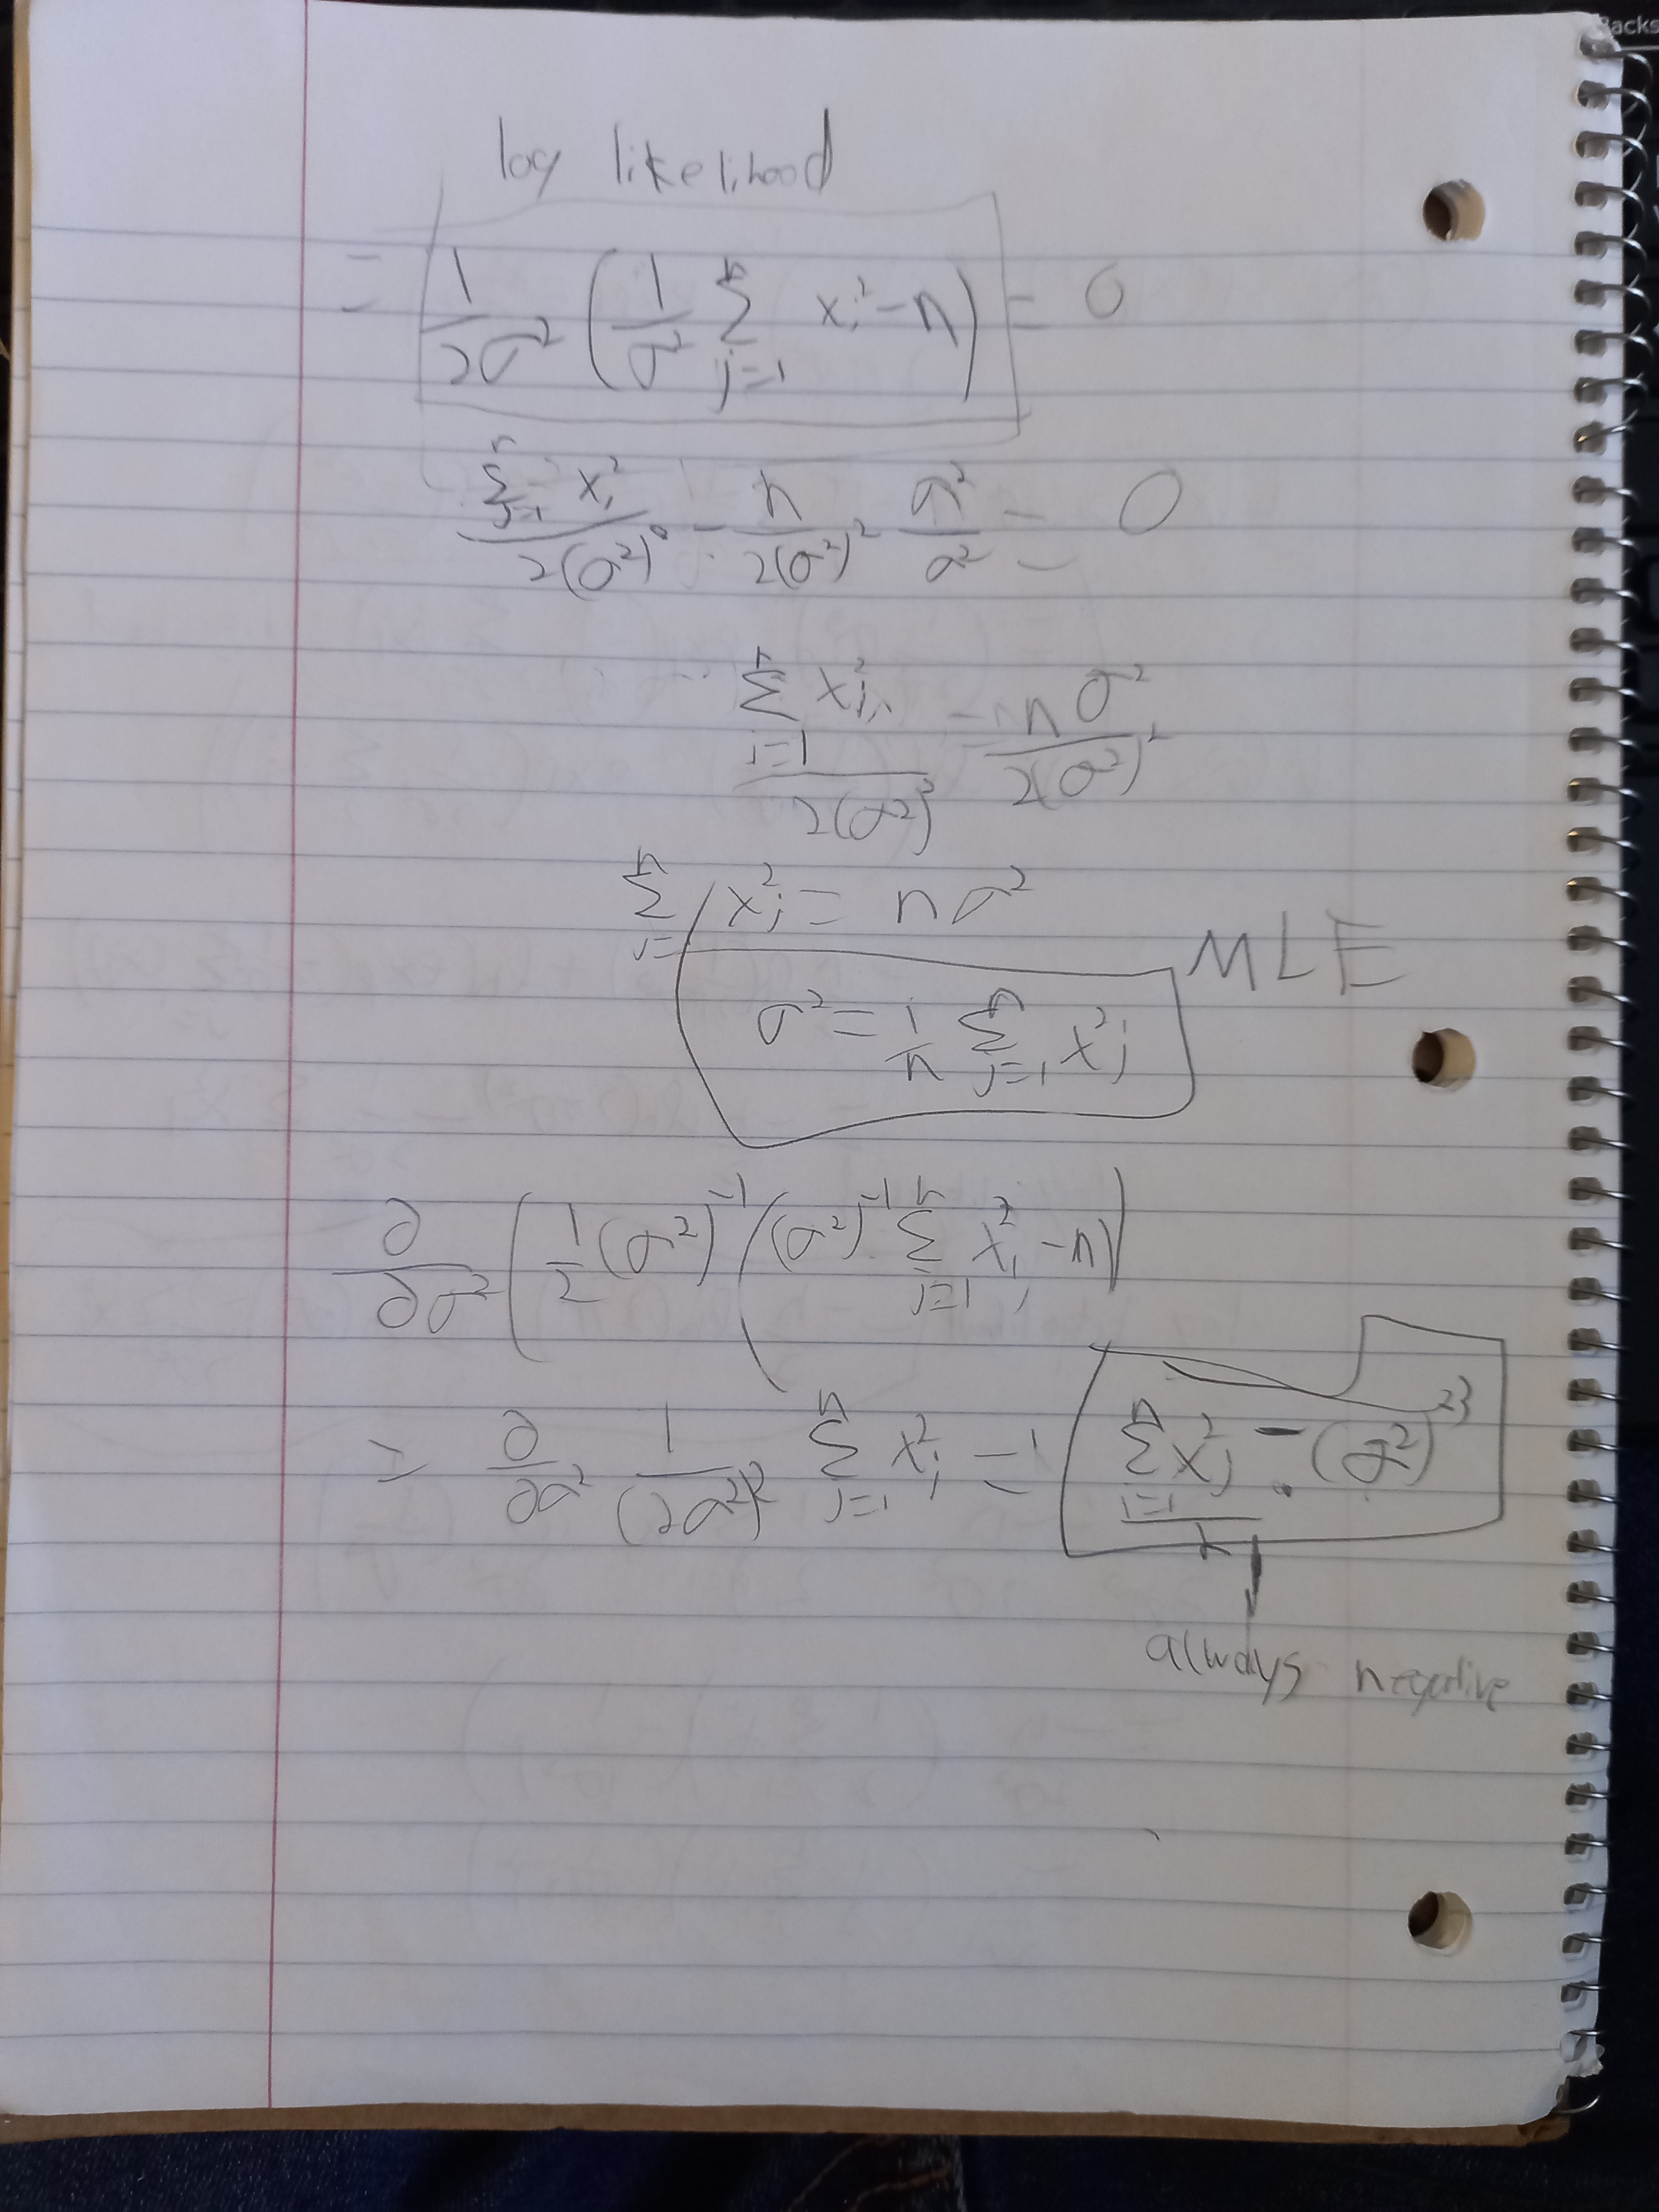 Backs
log likelihood
= 1/2σ² ( 1/σ² Σ_{j=1}^{n} x_j² - n ) = 0
Σ_{j=1}^{n} x_j² / 2(σ²)² - n / 2(σ²)² σ²/σ² = 0
Σ_{j=1}^{n} x_j² / 2(σ²)² - nσ² / 2(σ²)²
Σ_{j=1}^{n} x_j² = nσ²
σ² = 1/n Σ_{j=1}^{n} x_j² MLE
∂/∂σ² ( 1/2 (σ²)^{-1} ( (σ²)^{-1} Σ_{j=1}^{n} x_j² - n )
= ∂/∂σ² 1/(2σ²)² Σ_{j=1}^{n} x_j² = -1 Σ_{j=1}^{n} x_j² - (σ²)
always negative